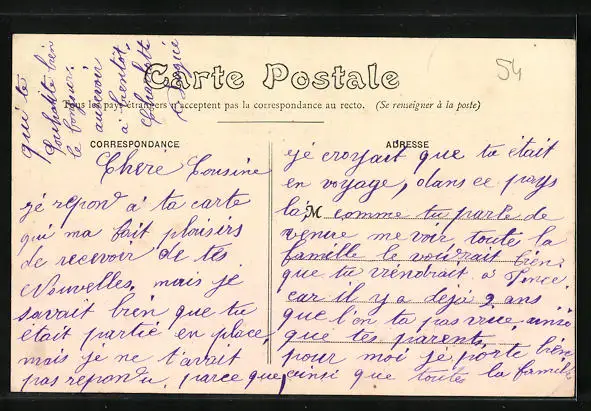 54
Carte Postale
Tous les pays étrangers n'acceptent pas la correspondance au recto. (Se renseigner à la poste)
CORRESPONDANCE
ADRESSE
M
Cheré Cousine
jé repond a ta carte
qui ma fait plaisirs
de recevoir de tes
Nouvelles. mais je
savait bien que tu
était partié en place,
mais je ne t'avait
pas repondu, parce que
jé croyait que ta était
en voyage, dans ce pays
la, comme tu parle de
venire me voir, toute la
famille le voudrait bien
que tu viendrait a
car il y a déjà 2 ans
que l'on ta pas vue, ainsi
que tes parents.
pour moi je porte bien
ainsi que toutes la famille
qui te
Souhaite bien
le bonjour.
au revoir
à bientot.